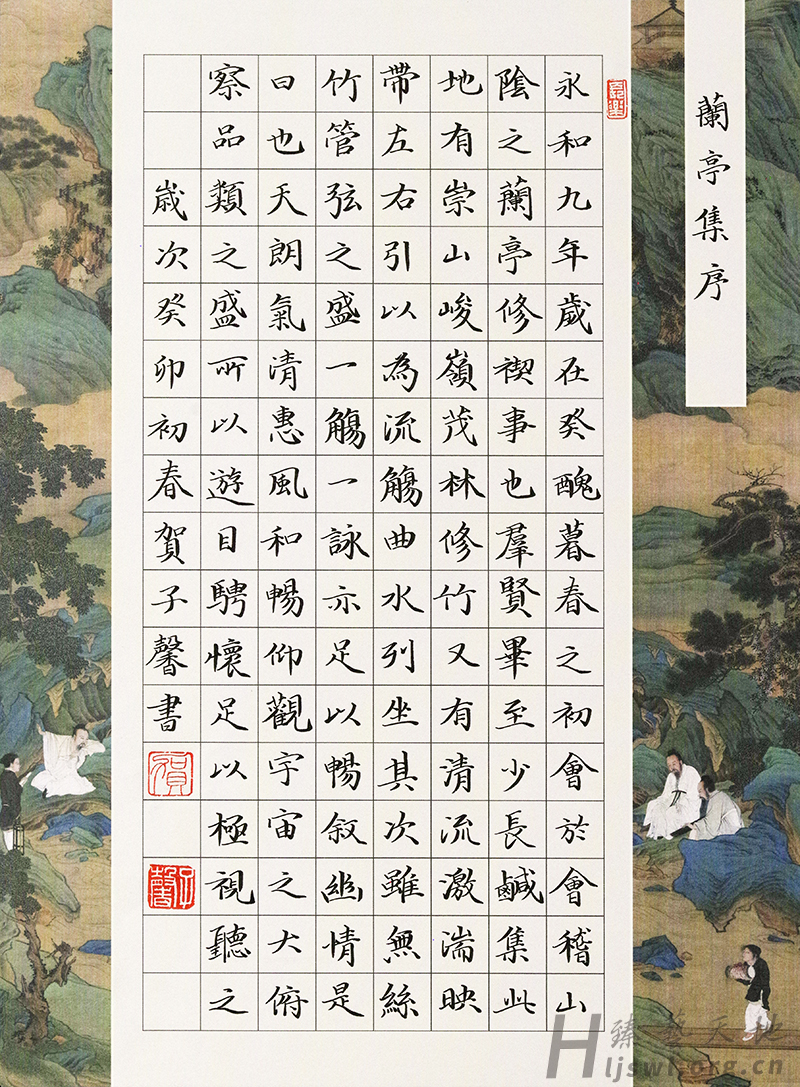 蘭亭集序
永和九年歲在癸醜暮春之初會於會稽山
陰之蘭亭修禊事也羣賢畢至少長鹹集此
地有崇山峻嶺茂林修竹又有清流激湍映
帶左右引以為流觴曲水列坐其次雖無絲
竹管弦之盛一觴一詠亦足以暢叙幽情是
日也天朗氣清惠風和暢仰觀宇宙之大俯
察品類之盛所以遊目騁懷足以極視聽之
歲次癸卯初春賀子馨書
賀
子馨
臻藝天地
Hljswl.org.cn